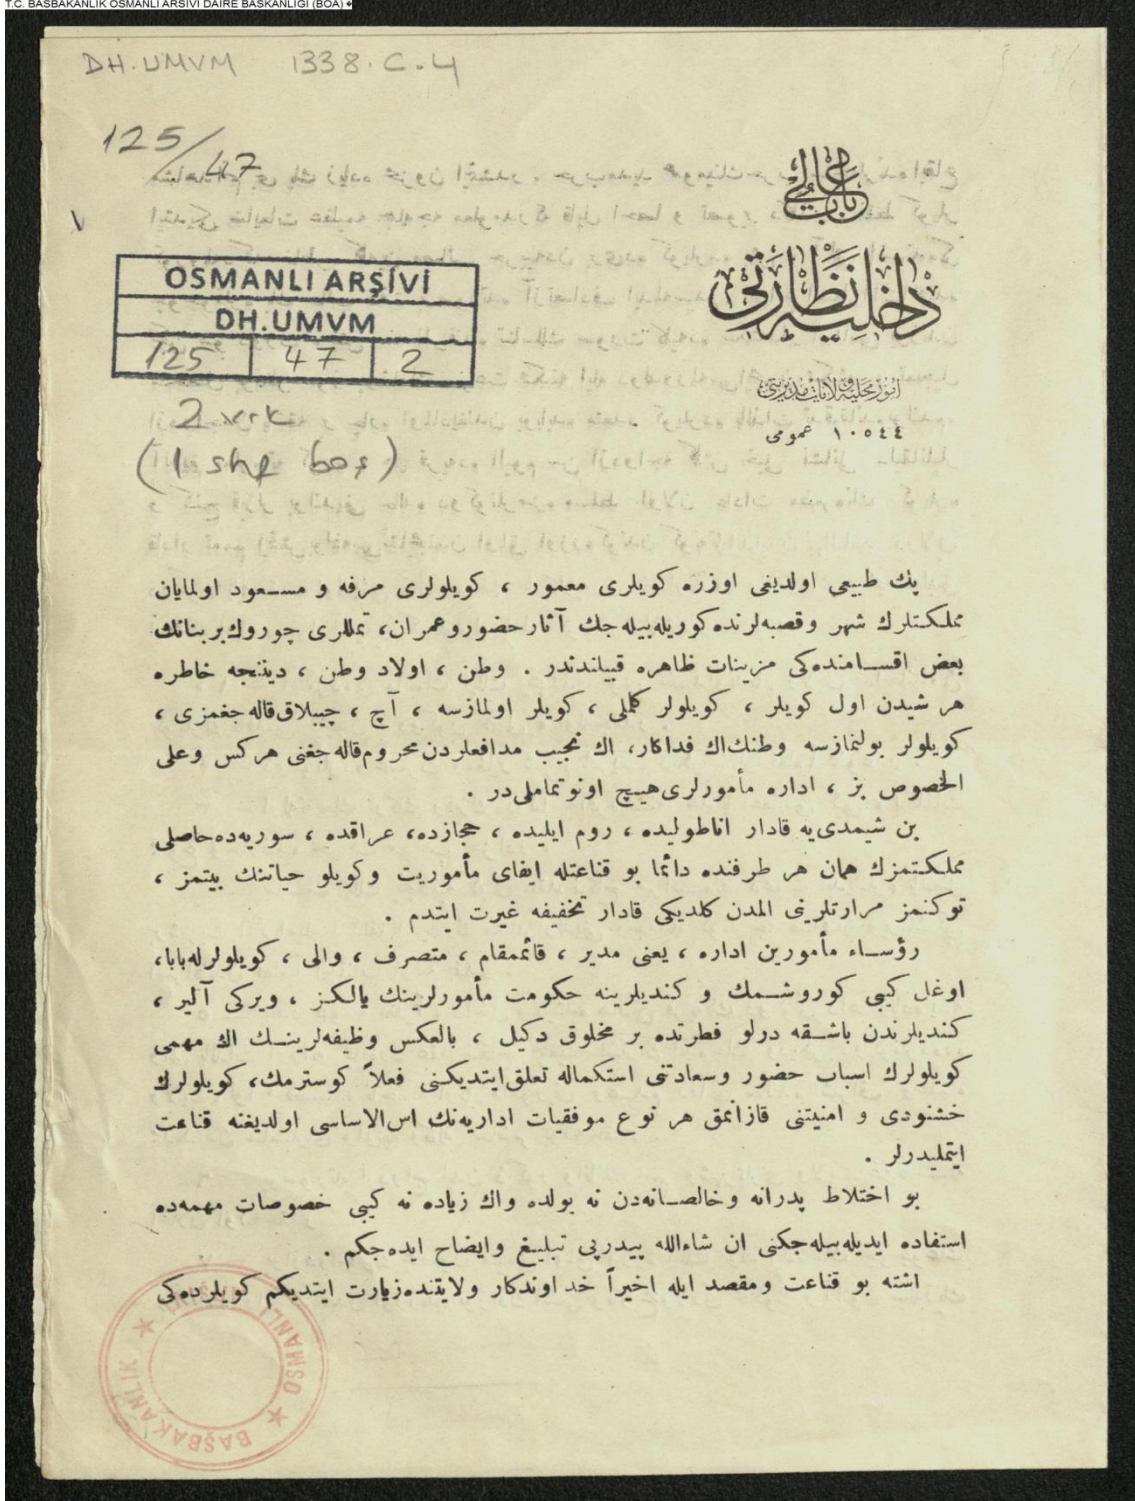 T.C. BASBAKANLIK OSMANLI ARSIVI DAIRE BASKANLIGI (BOA)
DH.UMVM 1338.C.4
125/47
باب عالی
داخلیه نظارتی
امور محلیه ولایات مدیریتی
عمومی ١٠٥٤٤
OSMANLI ARŞİVİ
DH.UMVM
125 47 2
2
(1 shf boş)
پك طبیعی اولدیغی اوزره كویلری معمور ، كویلولری مرفه و مسـعود اولمایان
مملكـتلرك شهر وقصبه‌لرنده‌كوریله‌بیله‌جك آثارحضوروعمران، تمللری چوروك‌بربنانك
بعض اقسـامنده‌كی مزینات ظاهره قبیلندندر . وطن ، اولاد وطن ، دیننجه خاطره
هر شیدن اول كویلر ، كویلولر كلملی ، كویلر اولمازسه ، آچ ، چیبلاق‌قاله‌جغمزی ،
كویلولر بولنمازسه وطنك‌اك فداكار، اك نجیب مدافعلردن‌محروم‌قاله‌جغنی هركس وعلی
الخصوص بز ، اداره مأمورلری‌هیـچ اونوتماملی‌در .
بن شیمدی‌یه قادار اناطولیده ، روم ایلیده ، حجازده، عراقده ، سوریه‌ده‌حاصلی
مملكـتمزك همان هر طرفنده دائما بو قناعتله ایفای مأموریت وكویلو حیاتنك بیتمز ،
توكنمز مرارتلرینی المدن كلدیكی قادار تخفیفه غیرت ایتدم .
رؤسـاء مأمورین اداره ، یعنی مدیر ، قائممقام ، متصرف ، والی ، كویلولرله‌بابا،
اوغل كیبی كوروشـمك و كندیلرینه حكومت مأمورلرینك یالكـز ، ویركی آلیر ،
كندیلرندن باشـقه درلو فطرتده بر مخلوق دكیل ، بالعكس وظیفه‌لرینـك اك مهمی
كویلولرك اسباب حضور وسعادتنی استكماله تعلق‌ایتدیكـنی فعلاً كوسترمك، كویلولرك
خشنودی و امنیتنی قازانمق هر نوع موفقیات اداریه‌نك اس‌الاساسی اولدیغنه قناعت
ایتملیدرلر .
بو اختلاط پدرانه وخالصـانه‌دن نه یولده واك زیاده نه كیبی خصوصات مهمه‌ده
استفاده ایدیله‌بیله‌جكنی ان شاءالله پیدرپی تبلیـغ وایضاح ایده‌جكم .
اشته بو قناعت ومقصد ایله اخیراً خداوندكار ولایتنده‌زیارت ایتدیكم كویلرده‌كی
BAŞBAKANLIK OSMANLI